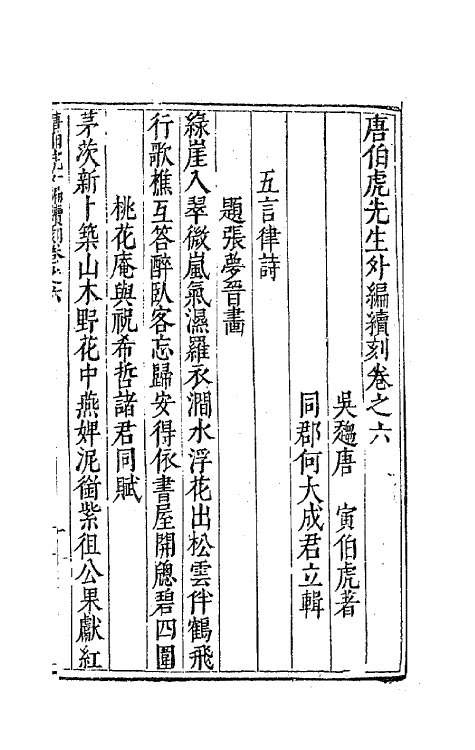 唐伯虎先生外編續刻卷之六
吳趨唐　寅伯虎著
同郡何大成君立輯
五言律詩
題張夢晉畵
綠崖入翠微嵐氣濕羅衣澗水浮花出松雲伴鶴飛
行歌樵互答醉臥客忘歸安得依書屋開牕碧四圍
桃花庵與祝希哲諸君同賦
茅茨新卜築山木野花中燕婢泥銜紫狙公果獻紅